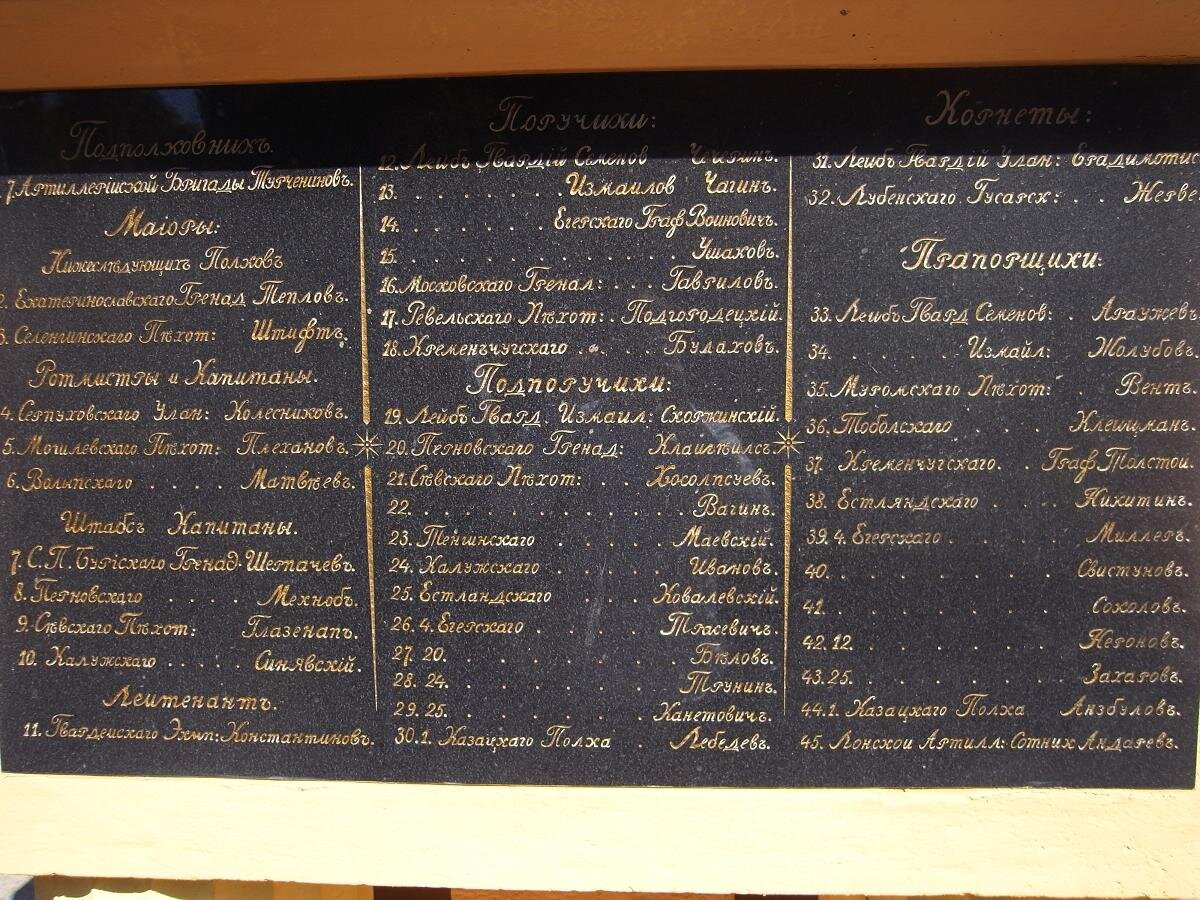 Подполковникъ.
7. Артиллерійской Бригады Турчениновъ.
Маіоры:
Нижеслѣдующихъ Полковъ
2. Екатеринославскаго Гренад Тепловъ.
3. Селенгинскаго Пѣхот: Штифтъ.
Ротмистры и Капитаны.
4. Серпуховскаго Улан: Колесниковъ.
5. Могилевскаго Пѣхот: Плехановъ.
6. Волынскаго . . . . Матвѣевъ.
Штабсъ Капитаны.
7. С.П. Бургскаго Гренад. Шерпачевъ.
8. Перновскаго . . . . Мехнобъ.
9. Сѣвскаго Пѣхот: Глазенапъ.
10. Калужскаго . . . . . Синявскій.
Лейтенантъ.
11. Гвардейскаго Экип: Константиновъ.
Поручики:
12. Лейбъ Гвардій Семенов Чичеринъ.
13. . . . . . . Измаилов Чагинъ.
14. . . . . . . Егерскаго Граф Воиновичъ.
15. . . . . . . . . . . . . Ушаковъ.
16. Московскаго Гренал: . . . Гавриловъ.
17. Ревельскаго Пѣхот: . Подгородецкій.
18. Кременъчугскаго . . . . Булаховъ.
Подпоручики:
19. Лейбъ Гвард. Измаил: Скоржинскій.
20. Перновскаго Гренад:
21. Сѣвскаго Пѣхот: . . Косолпсуевъ.
22. . . . . . . . . . . . . Вагинъ.
23. Тенгинскаго . . . . . Маевскій.
24. Калужскаго . . . . . Ивановъ.
25. Естландскаго . . . . Ковалевскій.
26. 4. Егерскаго . . . . . Трасевичъ.
27. 20. . . . . . . . . Бѣловъ.
28. 24. . . . . . . . . Трунинъ.
29. 25. . . . . . . . . Канетовичъ.
30. 1. Казацкаго Полка . Лебедевъ.
Корнеты:
31. Лейбъ Гвардій Улан:
32. Лубенскаго Гусарск: . . Жерве
Прапорщики:
33. Лейбъ Гвард Семенов: . Араужевъ
34. . . . . Измайл: Жолубовъ
35. Муромскаго Пѣхот: . Вентъ.
36. Тоболскаго . . . Клешцман.
37. Кременчугскаго. . Граф Толстои.
38. Естляндскаго . . . Никитинъ.
39. 4. Егерскаго . . . . Миллеръ.
40. . . . . . . . Свистуновъ.
41. . . . . . . . Соколовъ.
42. 12. . . . . . . Нероновъ.
43. 25. . . . . . . Захаровъ.
44. 1. Казацкаго Полка Анзбуловъ.
45. Донскои Артилл: Сотник Андаревъ.